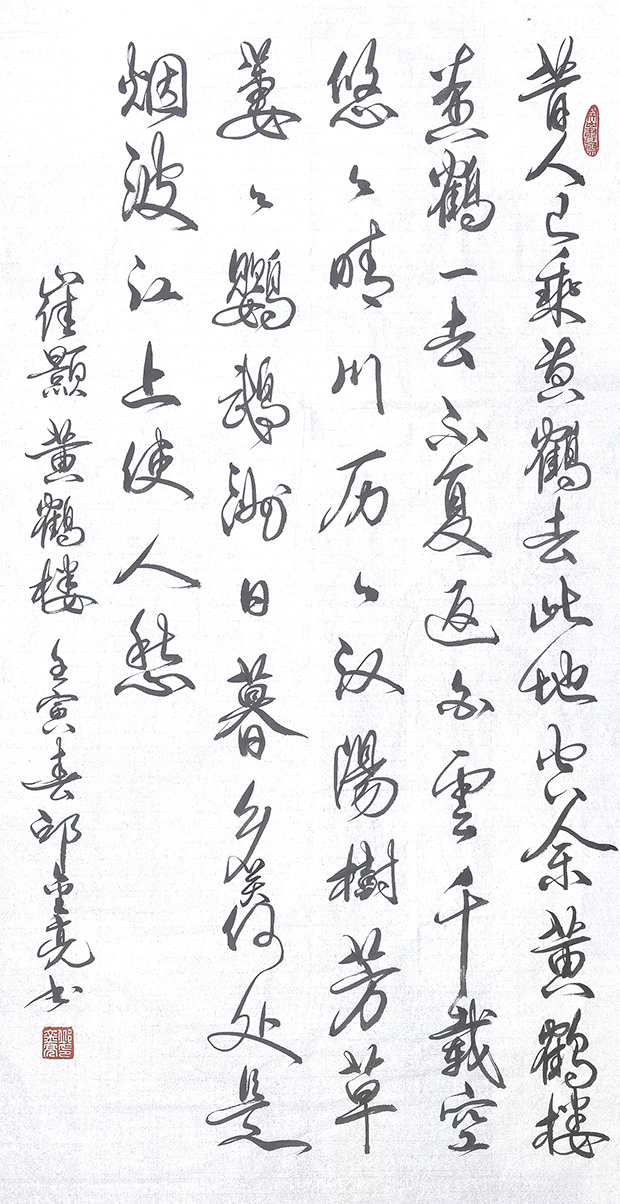 昔人已乘黄鹤去此地空余黄鹤楼
黄鹤一去不复返白雲千载空
悠々晴川历々汉陽樹芳草
萋々鹦鹉洲日暮乡关何处是
烟波江上使人愁
崔颢黄鹤楼 壬寅春邱金亮书